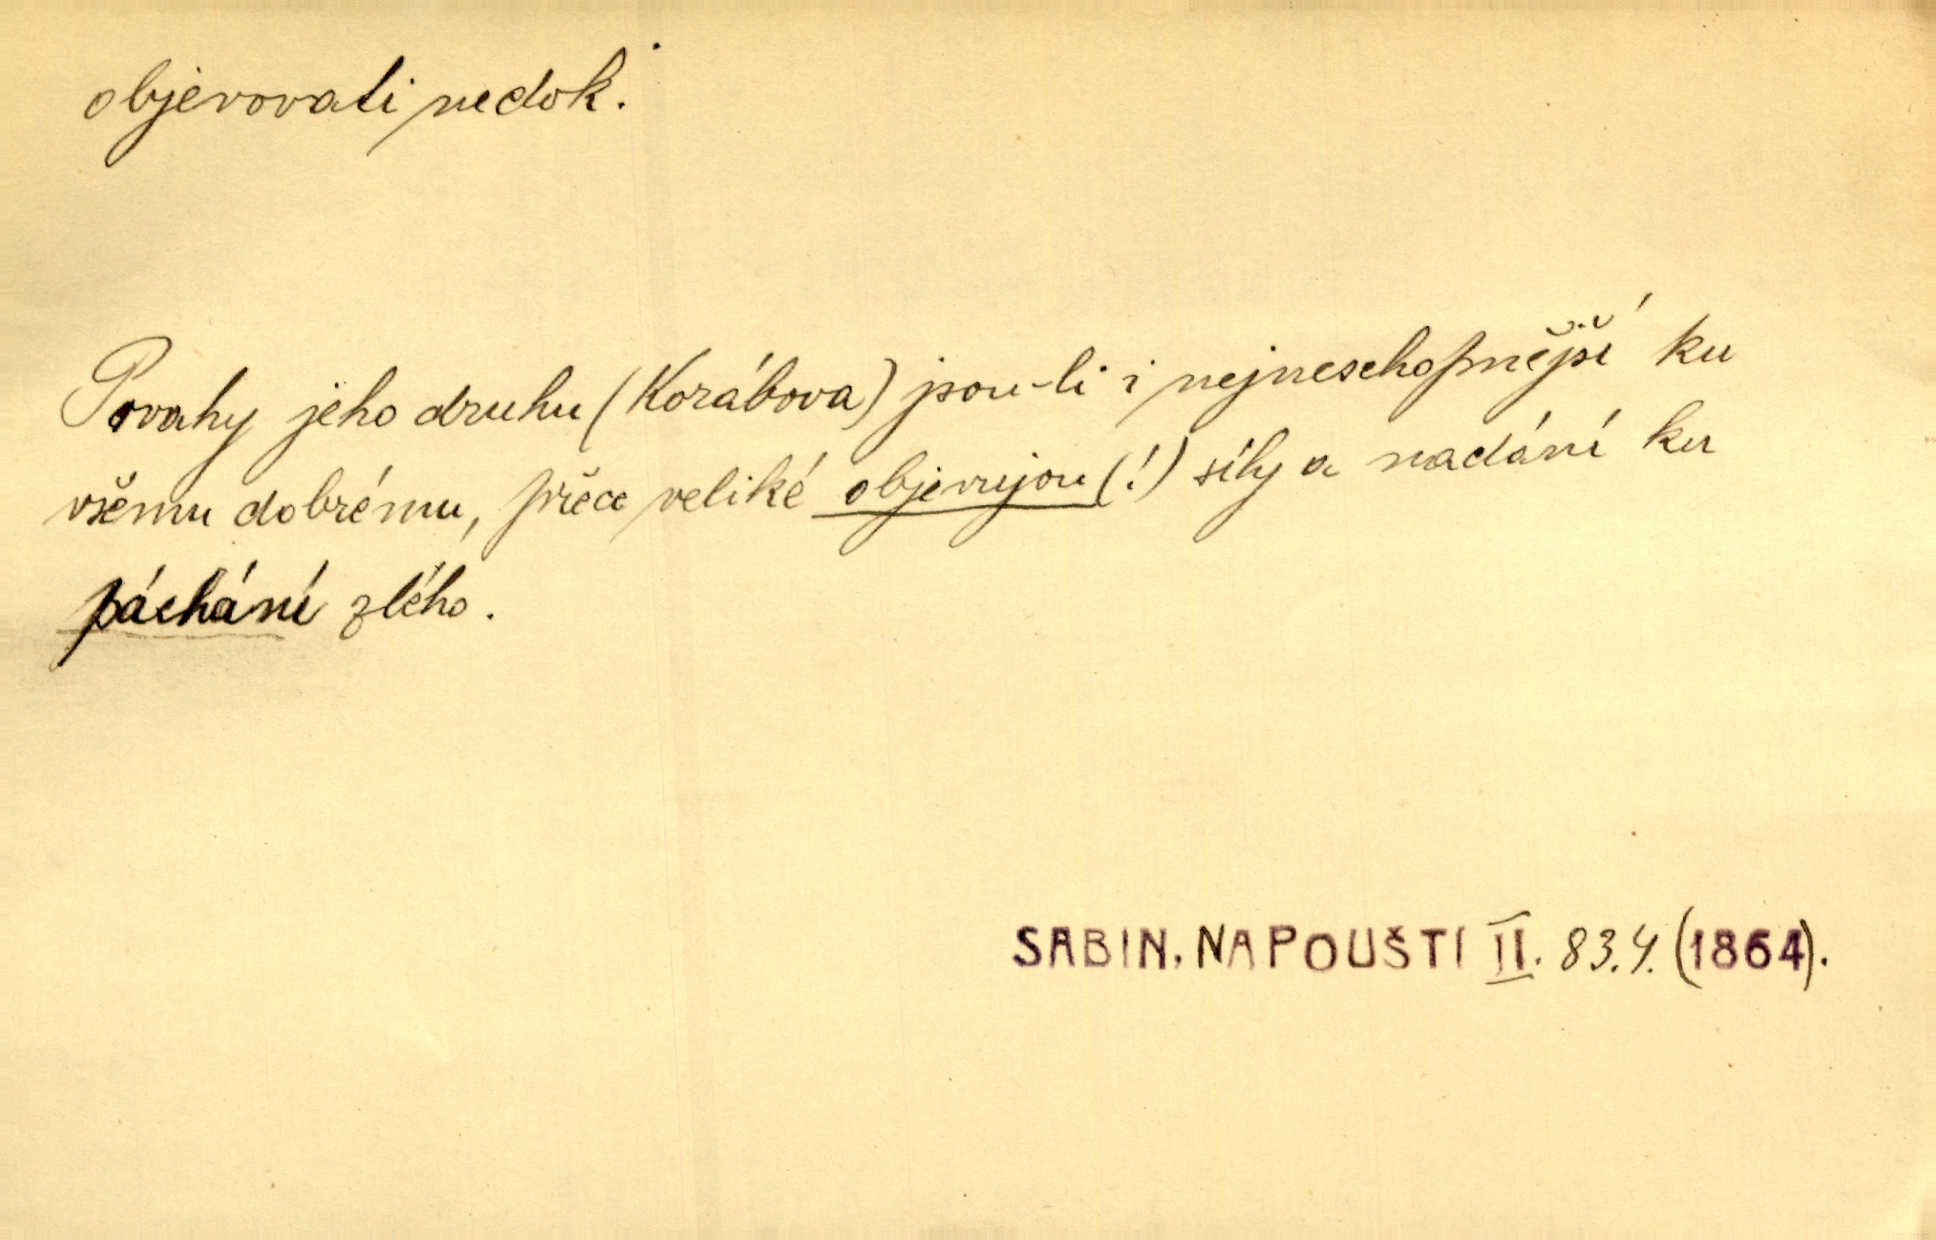 objevovati nedok.
Povahy jeho druhu (Korábova) jsou-li i nejneschopnější ku
všemu dobrému, přece veliké objevujou (!) síly a nadání ku
páchání zlého.
SABIN, NA POUŠTI II. 83.4. (1864).